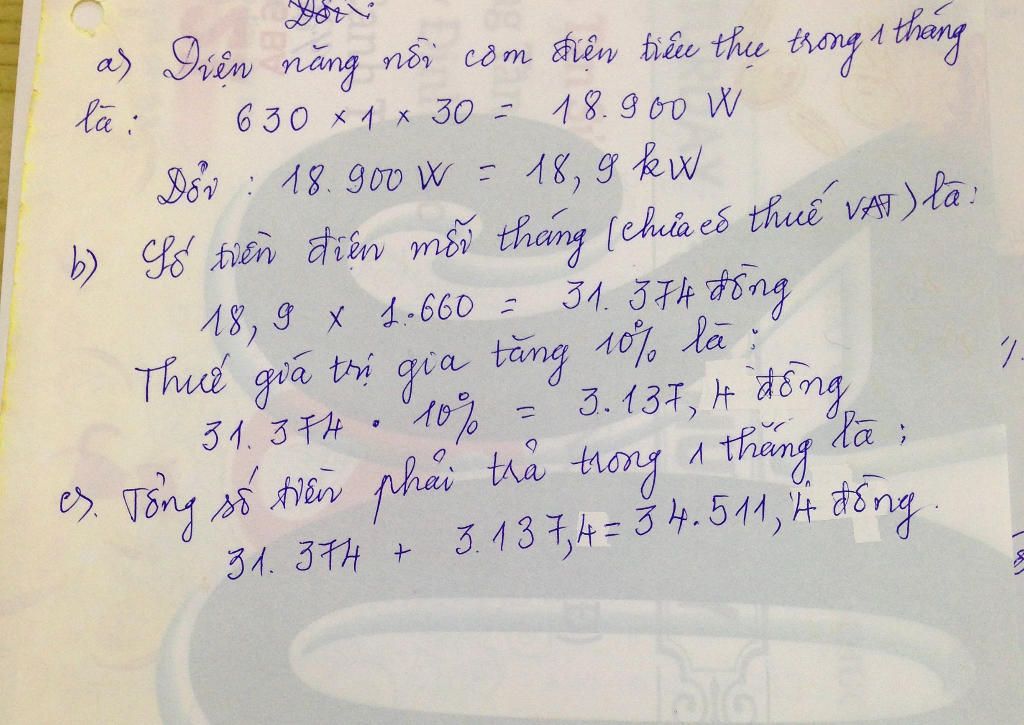 Đổi:
a) Điện năng nồi cơm điện tiêu thụ trong 1 tháng
là : 630 × 1 × 30 = 18.900 W
Đổi : 18.900 W = 18,9 kW
b) Số tiền điện mỗi tháng (chưa có thuế VAT) là:
18,9 × 1.660 = 31.374 đồng
Thuế giá trị gia tăng 10% là :
31.374 . 10% = 3.137,4 đồng
c). Tổng số tiền phải trả trong 1 tháng là :
31.374 + 3.137,4 = 34.511,4 đồng.